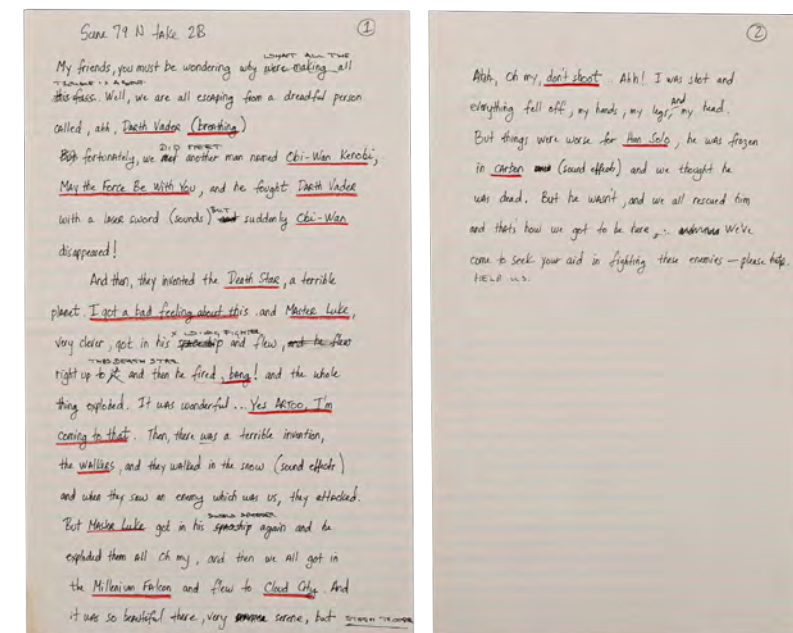 Scene 79 N take 2B
1
WHAT ALL THE
My friends, you must be wondering why were making all
TROUBLE IS ABOUT
this fuss. Well, we are all escaping from a dreadful person
called, ahh, Darth Vader (breathing)
DID MEET
But fortunately, we met another man named Obi-Wan Kenobi,
May the Force Be With You, and he fought Darth Vader
BUT
with a laser sword (sounds) and suddenly Obi-Wan
disappeared!
And then, they invented the Death Star, a terrible
planet. I got a bad feeling about this. and Master Luke,
X WING FIGHTER
very clever, got in his spaceship and flew, and he flew
THIS DEATH STAR
right up to it and then he fired, bang! and the whole
thing exploded. It was wonderful... Yes Artoo, I'm
coming to that. Then, there was a terrible invention,
the walkers, and they walked in the snow (sound effects)
and when they saw an enemy which was us, they attacked.
But Master Luke got in his spaceship again and he
exploded them all Oh my, and then we all got in
the Millenium Falcon and flew to Cloud City. And
it was so beautiful there, very serene, but STORM TROOPER
2
Ahh, Oh my, don't shoot. Ahh! I was shot and
and
everything fell off, my hands, my legs, my head.
But things were worse for Han Solo, he was frozen
in carbon (sound effects) and we thought he
was dead. But he wasn't, and we all rescued him
and thats how we got to be here, We've
come to seek your aid in fighting these enemies — please help.
HELP US.